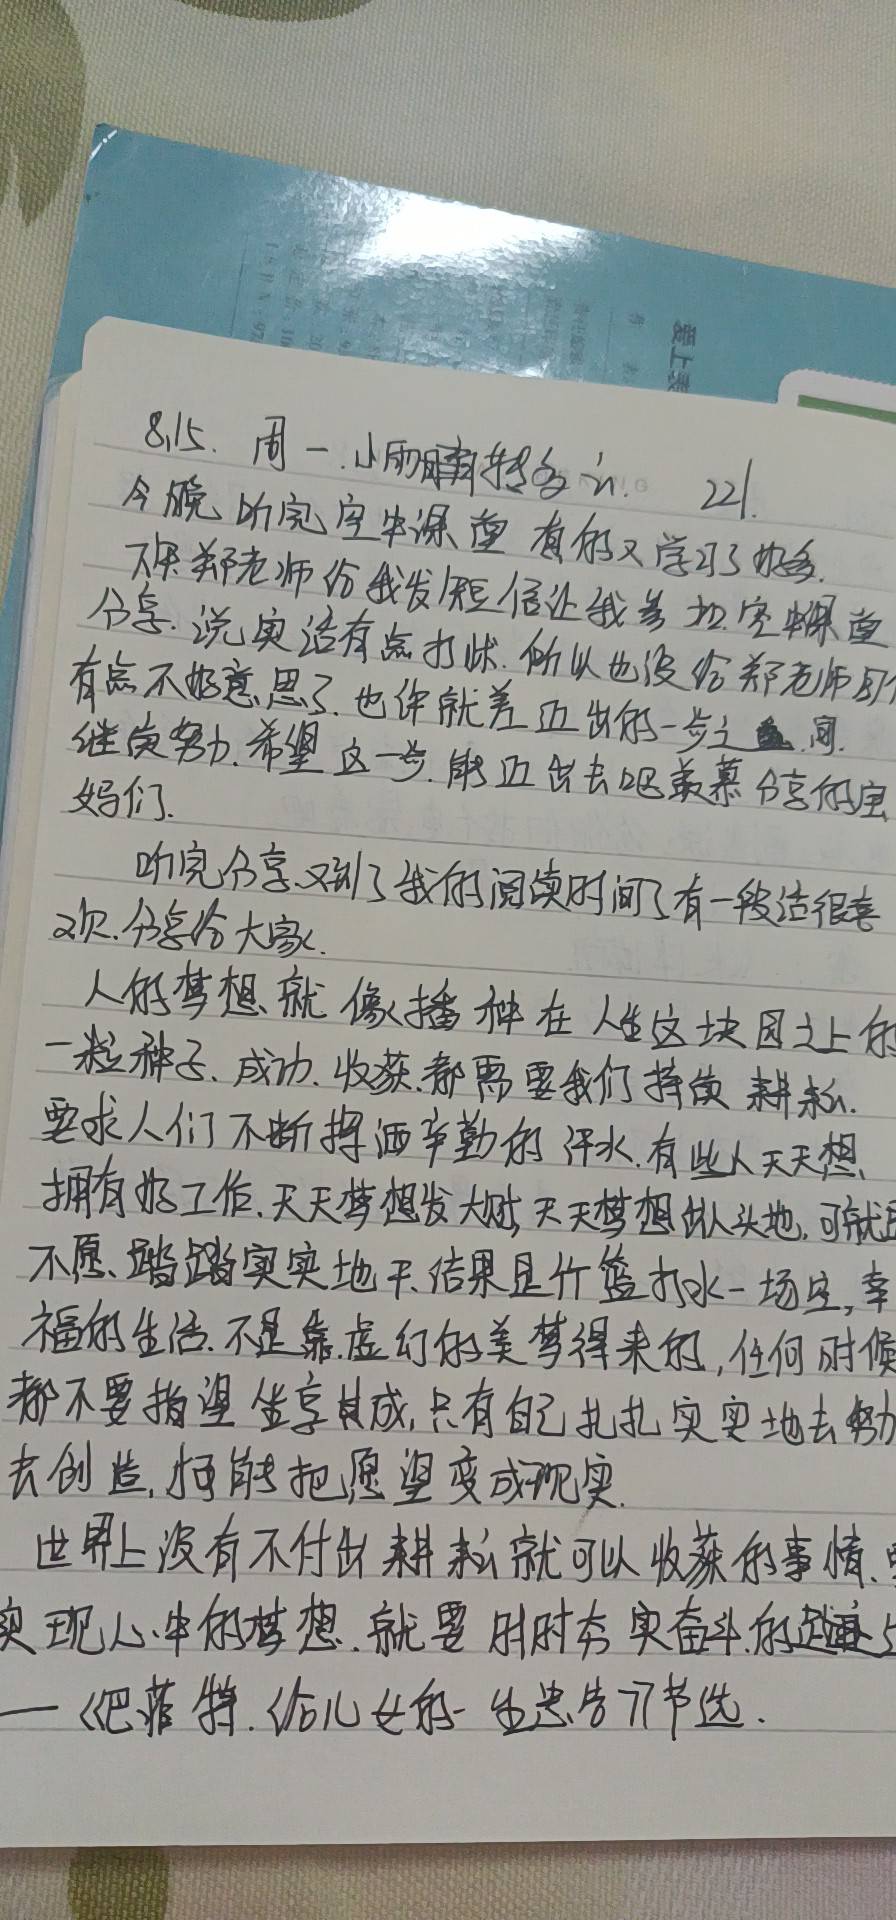 爱上表
8.15. 周一.小雨晴转多云. 221.
今晚听完空中课堂 有的又学习了好多.
郑老师给我发短信让我参加空中课堂
分享.说实话有点打怵.所以也没给郑老师回信
有点不好意思了.也许就差迈出的一步之间.
继续努力.希望这一步.能迈出去吧羡慕分享的宝
妈们.
听完分享.又到了我的阅读时间了有一段话很喜
欢.分享给大家.
人的梦想就像播种在人生这块园土上的
一粒种子.成功.收获.都需要我们持续耕耘.
要求人们不断挥洒辛勤的汗水.有些人天天想
拥有好工作.天天梦想发大财,天天梦想出人头地,可就是
不愿踏踏实实地干.结果是竹篮打水一场空,幸
福的生活.不是靠虚幻的美梦得来的,任何时候
都不要指望坐享其成,只有自己扎扎实实地去努力
去创造,才能把愿望变成现实.
世界上没有不付出耕耘就可以收获的事情.要
实现心中的梦想.就要时时夯实奋斗的
——《巴菲特.给儿女的一生忠告》节选.